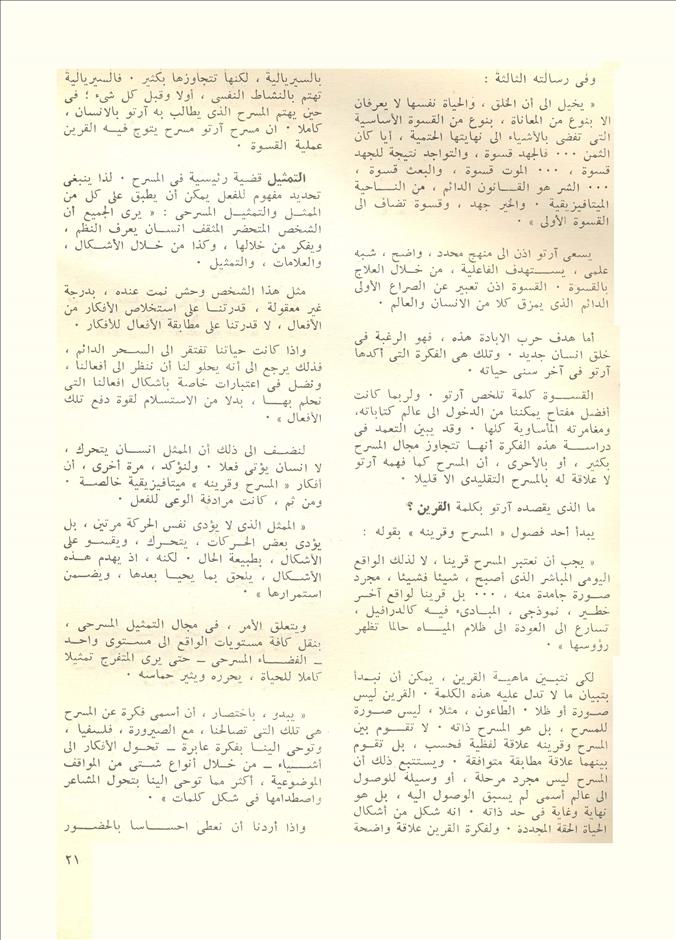 وفى رسالته الثالثة :
« يخيل الى أن الخلق ، والحياة نفسها لا يعرفان
الا بنوع من المعاناة ، بنوع من القسوة الأساسية
التى تفضى بالأشياء الى نهايتها الحتمية ، أيا كان
الثمن ٠٠٠ فالجهد قسوة ، والتواجد نتيجة للجهد
قسوة ، ٠٠٠ الموت قسوة ، والبعث قسوة ،
٠٠٠ الشر هو القــانون الدائم ، من النــاحية
الميتافيزيقية ٠ والخير جهد ، وقسوة تضاف الى
القسوة الأولى » ٠
يسعى آرتو اذن الى منهج محدد ، واضح ، شبه
علمى ، يســتهدف الفاعلية ، من خــلال العلاج
بالقسوة ٠ القسوة اذن تعبير عن الصراع الأولى
الدائم الذى يمزق كلا من الانسان والعالم ٠
أما هدف حرب الابادة هذه ، فهو الرغبة فى
خلق انسان جديد ٠ وتلك هى الفكرة التى أكدها
آرتو فى آخر سنى حياته ٠
القســوة كلمة تلخص آرتو ٠ ولربما كانت
أفضل مفتاح يمكننا من الدخول الى عالم كتاباته،
ومغامرته المأساوية كلها ٠ وقد يبين التعمد فى
دراســة هذه الفكرة أنهـا تتجاوز مجال المسرح
بكثير ، أو بالأحرى ، أن المسرح كما فهمه آرتو
لا علاقة له بالمسرح التقليدى الا قليلا ٠
ما الذى يقصده آرتو بكلمة القرين ؟
يبدأ أحد فصول « المسرح وقرينه » بقوله :
« يجب أن نعتبر المسرح قرينا ، لا لذلك الواقع
اليومى المباشر الذى أصبح ، شيئا فشيئا ، مجرد
صـورة جامدة منه ، ٠٠٠ بل قرينا لواقع آخـر
خطـير ، نموذجى ، المبـادىء فيـه كالدرافيل ،
تسارع الى العودة الى ظلام الميـاه حالما تظهر
رؤوسها » ٠
لكى نتبـين ماهيـة القرين ، يمكن أن نبـدأ
بتبيان ما لا تدل عليه هذه الكلمة ٠ القرين ليس
صـورة أو ظلا ٠ الطاعون ، مثلا ، ليس صـورة
للمسرح ، بل هو المسرح ذاته ٠ لا تقـوم بين
المسرح وقرينه علاقة لفظية فحسب ، بل تقـوم
بينهما علاقة مطابقة متوافقة ٠ ويستتبع ذلك أن
المسرح ليس مجرد مرحلة ، أو وسيلة للوصول
الى عالم أسمى لم يسبق الوصول اليه ، بل هو
نهاية وغاية فى حد ذاته ٠ انه شكل من أشكال
الحياة الحقة المجددة ٠ ولفكرة القرين علاقة واضحة
بالسيريالية ، لكنهـا تتجاوزها بكثير ٠ فالسيريالية
تهتم بالنشاط النفسى ، أولا وقبل كل شىء ؛ فى
حين يهتم المسرح الذى يطالب به آرتو بالانسان ،
كاملا ٠ ان مسرح آرتو مسرح يتوج فيـه القرين
عملية القسوة ٠
التمثيل قضية رئيسية فى المسرح ٠ لذا ينبغى
تحديد مفهوم للفعل يمكن أن يطبق على كل من
الممثل والتمثيـل المسرحى : « يرى الجميع أن
الشخص المتحضر المثقف انسـان يعرف النظم ،
ويفكر من خلالها ، وكذا من خـلال الأشكـال ،
والعلامات ، والتمثيل ٠
مثل هذا الشخص وحش نمت عنده ، بدرجة
غير معقولة ، قدرتنـا على استخلاص الأفكار من
الأفعال ، لا قدرتنا على مطابقة الأفعال للأفكار ٠
واذا كانت حياتنا تفتقر الى السـحر الدائم ،
فذلك يرجع الى أنه يحلو لنا أن ننظر الى أفعالنا ،
ونضل فى اعتبارات خاصة بأشكال افعالنا التى
نحلم بهـا ، بدلا من الاستسلام لقوة دفع تلك
الأفعال » ٠
لنضـف الى ذلك أن الممثل انسـان يتحرك ،
لا انسان يؤتى فعلا ٠ ولنؤكد ، مرة أخرى ، أن
أفكار « المسرح وقرينه » ميتافيزيقية خالصـة ٠
ومن ثم ، كانت مرادفة الوعى للفعل ٠
« الممثل الذى لا يؤدى نفس الحركة مرتين ، بل
يؤدى بعض الحـركات ، يتحرك ، ويقسـو على
الأشكال ، بطبيعة الحال ٠ لكنه ، اذ يهدم هـذه
الأشكـال ، يلحق بما يحيـا بعدها ، ويضـمن
استمرارها » ٠
ويتعلق الأمر ، فى مجال التمثيل المسرحى ،
بنقل كافة مستويات الواقع الى مسـتوى واحـد
ــ الفضـاء المسرحى ــ حتى يرى المتفرج تمثيلا
كاملا للحياة ، يحرره ويثير حماسه ٠
« يبدو ، باختصار ، أن أسمى فكرة عن المسرح
هى تلك التى تصالحنا ، مع الصيرورة ، فلسفيا ،
وتوحى الينـا بفكرة عابرة ــ تحـول الأفكار الى
أشـياء ــ من خـلال أنواع شـتى من المواقف
الموضوعية ، أكثر مما توحى الينا بتحول المشاعر
واصطدامها فى شكل كلمات » ٠
واذا أردنا أن نعطى احسـاسا بالحضـور
٢١